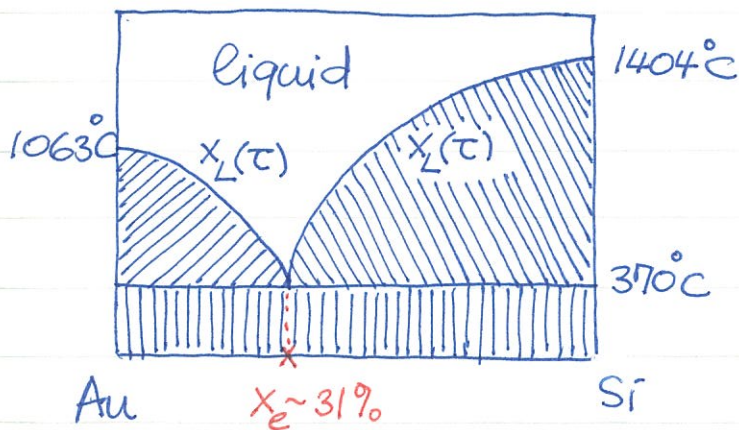 liquid
1404°C
1063°C
X_L(τ)
X_L(τ)
370°C
Au
X_e ~ 31%
Si